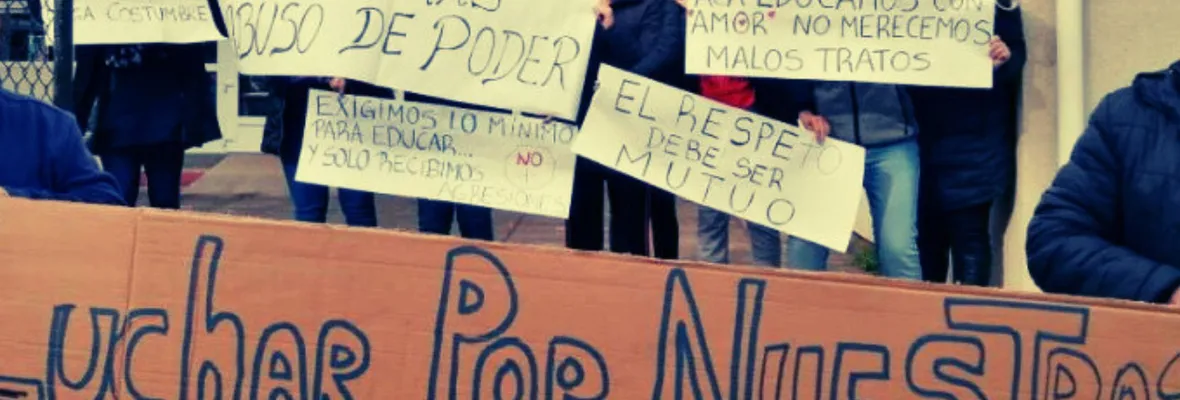 COSTUMBRE
ABUSO DE PODER
EDUCAMOS CON
"AMOR" NO MERECEMOS
MALOS TRATOS
EXIGIMOS LO MÍNIMO
PARA EDUCAR...
Y SOLO RECIBIMOS
AGRESIONES
NO
EL RESPETO
DEBE SER
MUTUO
Luchar Por Nuestros